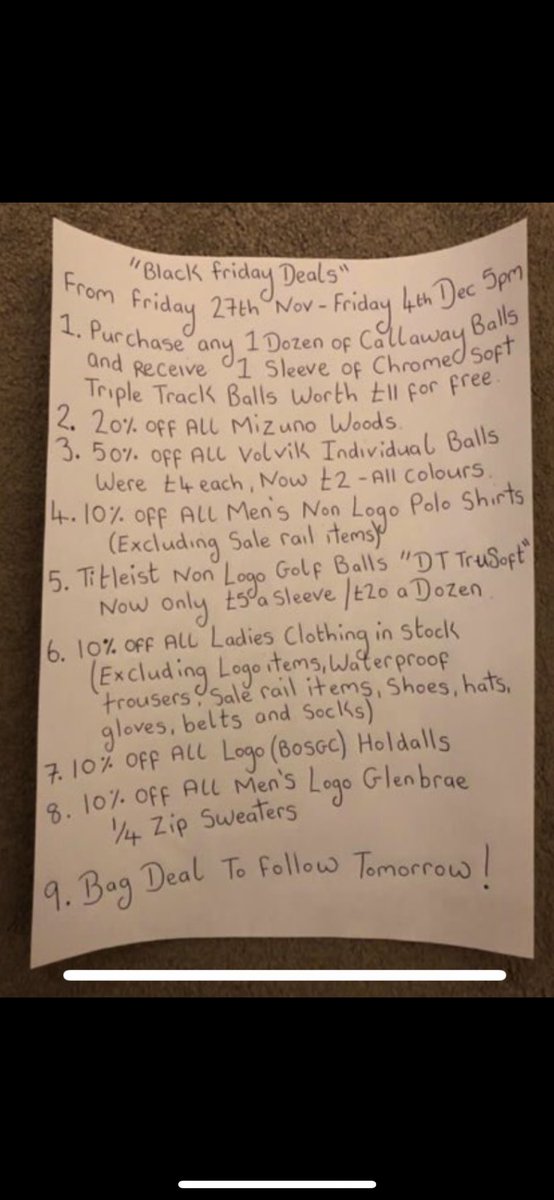 "Black Friday Deals"
From Friday 27th Nov - Friday 4th Dec 5pm
1. Purchase any 1 Dozen of Callaway Balls
and Receive 1 Sleeve of Chromed Soft
Triple Track Balls Worth £11 for free.
2. 20% OFF ALL Mizuno Woods.
3. 50% OFF ALL Volvik Individual Balls
Were £4 each, Now £2 - All colours.
4. 10% OFF ALL Men's Non Logo Polo Shirts
(Excluding Sale rail items)
5. Titleist Non Logo Golf Balls "DT TruSoft"
Now only £5 a Sleeve / £20 a Dozen.
6. 10% OFF ALL Ladies Clothing in Stock
(Excluding Logo items, Waterproof
trousers, Sale rail items, Shoes, hats,
gloves, belts and Socks)
7. 10% OFF ALL Logo (BOSGC) Holdalls
8. 10% OFF ALL Men's Logo Glenbrae
1/4 Zip Sweaters
9. Bag Deal To Follow Tomorrow!